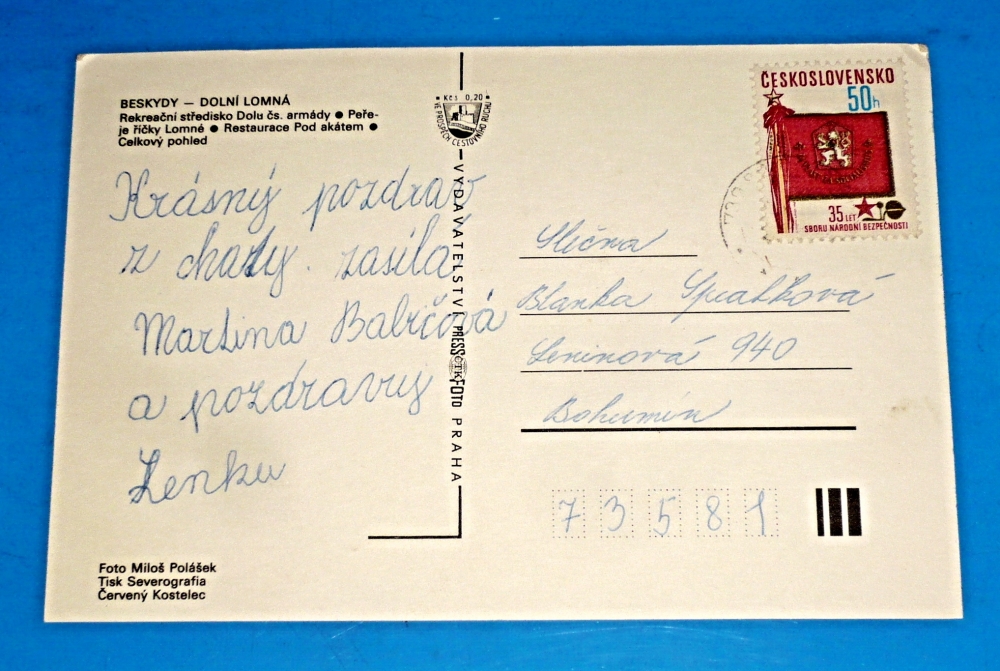 BESKYDY — DOLNÍ LOMNÁ
Rekreační středisko Dolu čs. armády ● Peře-
je říčky Lomné ● Restaurace Pod akátem ●
Celkový pohled
Krásný pozdrav
z chaty. zasílá
Martina Babičová
a pozdravuj
Lenku
Foto Miloš Polášek
Tisk Severografia
Červený Kostelec
Kčs 0,20
VE PROSPĚCH CESTOVNÍHO RUCHU
VYDAVATELSTVÍ PRESSFOTO PRAHA
ČTK
ČESKOSLOVENSKO
50h
35 LET
SBORU NÁRODNÍ BEZPEČNOSTI
Slečna
Blanka
Leninová 940
Bohumín
73581